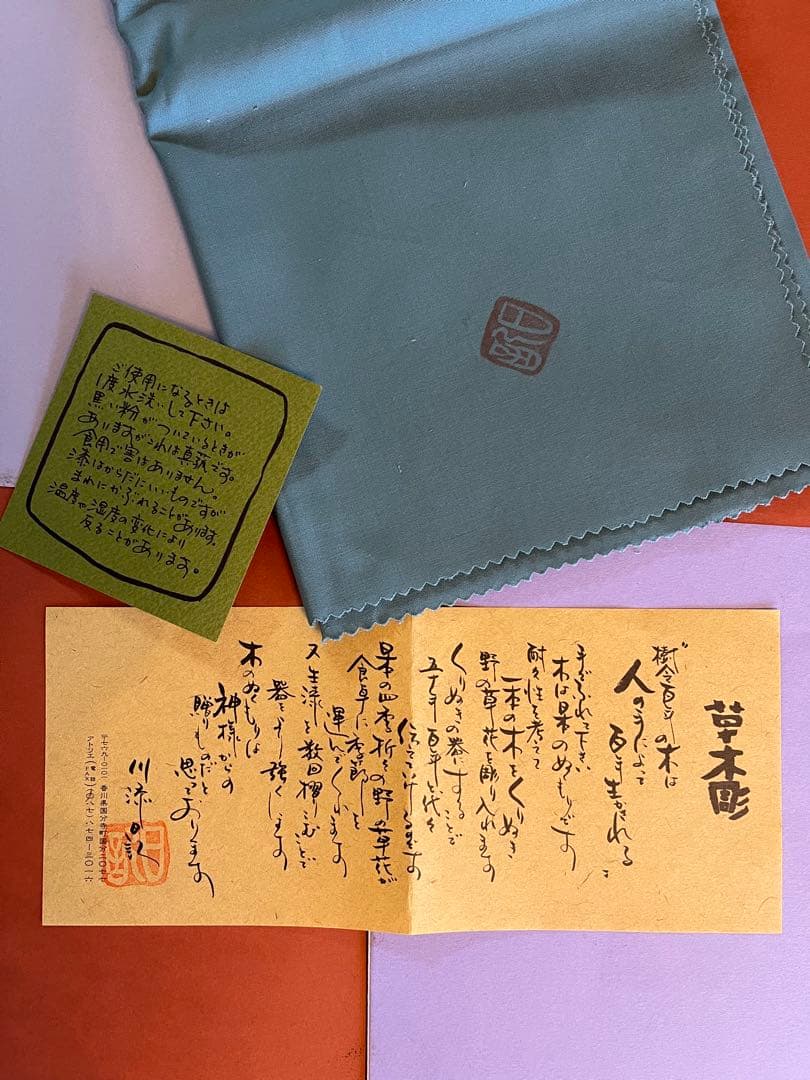 ご使用になるときは
1度水洗いして下さい。
黒い粉がついているときが
ありますがこれは真菰です。
食用で害はありません。
漆はからだにいいものですが
まれにかぶれることがあります。
温度や湿度の変化により
反ることがあります。
草木彫
樹令百年の木は
人の手によって
百年生かされる
手でふれて下さい
木は日本のぬくもりです
耐久性を考えて
一本の木をくりぬき
野の草花を彫り入れます
くりぬきの器にすることで
五十年百年と代々
伝えていけるのです
日本の四季折々の野の草花が
食卓に季節を
運んでくれます
又生漆を数回摺りこむことで
器をより強くします
木のぬくもりは
神様からの
贈りものだと
思っております
川添
〒七六九-〇一 香川県国分寺町国分二〇七七
アトリエ(電話・FAX)〇八七-八七四-三〇一六